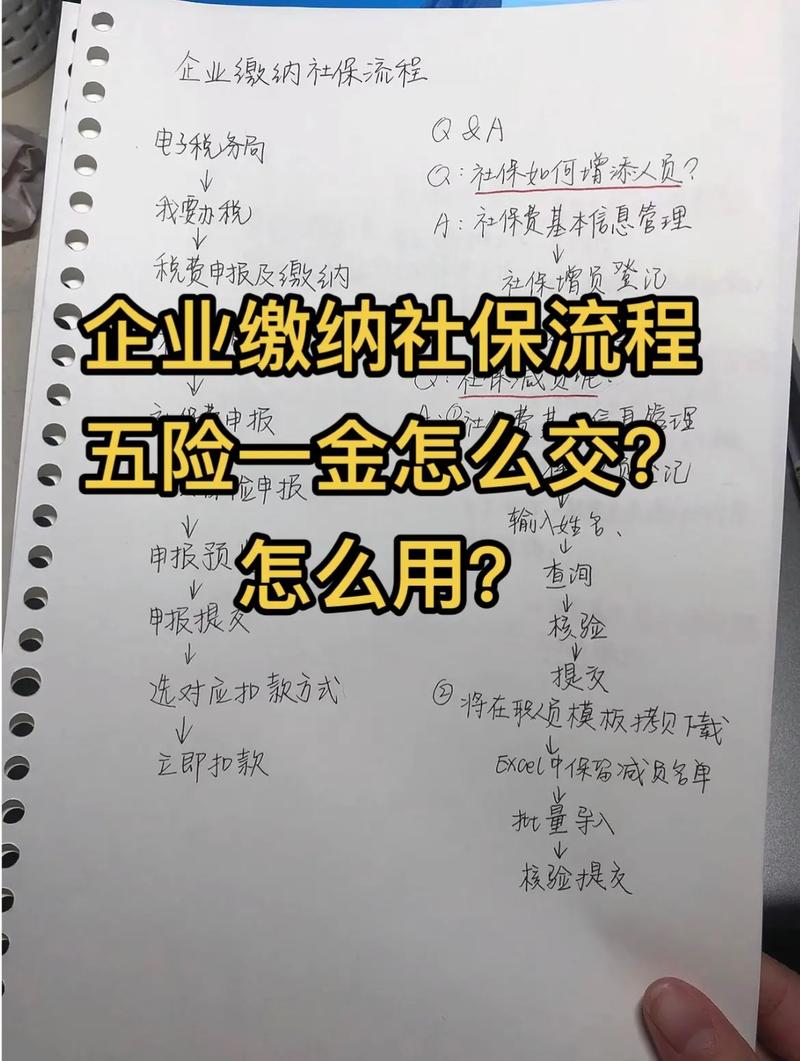 企业缴纳社保流程
电子税务局
↓
我要办税
↓
税费申报及缴纳
↓
申报
险申报
↓
申报预
↓
申报提交
↓
选对应扣款方式
↓
立即扣款
Q & A
Q：社保如何增添人员？
A：社保费基本信息管理
↓
社保增员登记
Q：社保减员呢？
A：①社保费基本信息管理
登记
输入姓名、
↓
查询
↓
核验
↓
提交
②将在职人员模板拷贝下载
↓
Excel中保留减员名单
↓
批量导入
↓
核验提交
企业缴纳社保流程
五险一金怎么交？
怎么用？